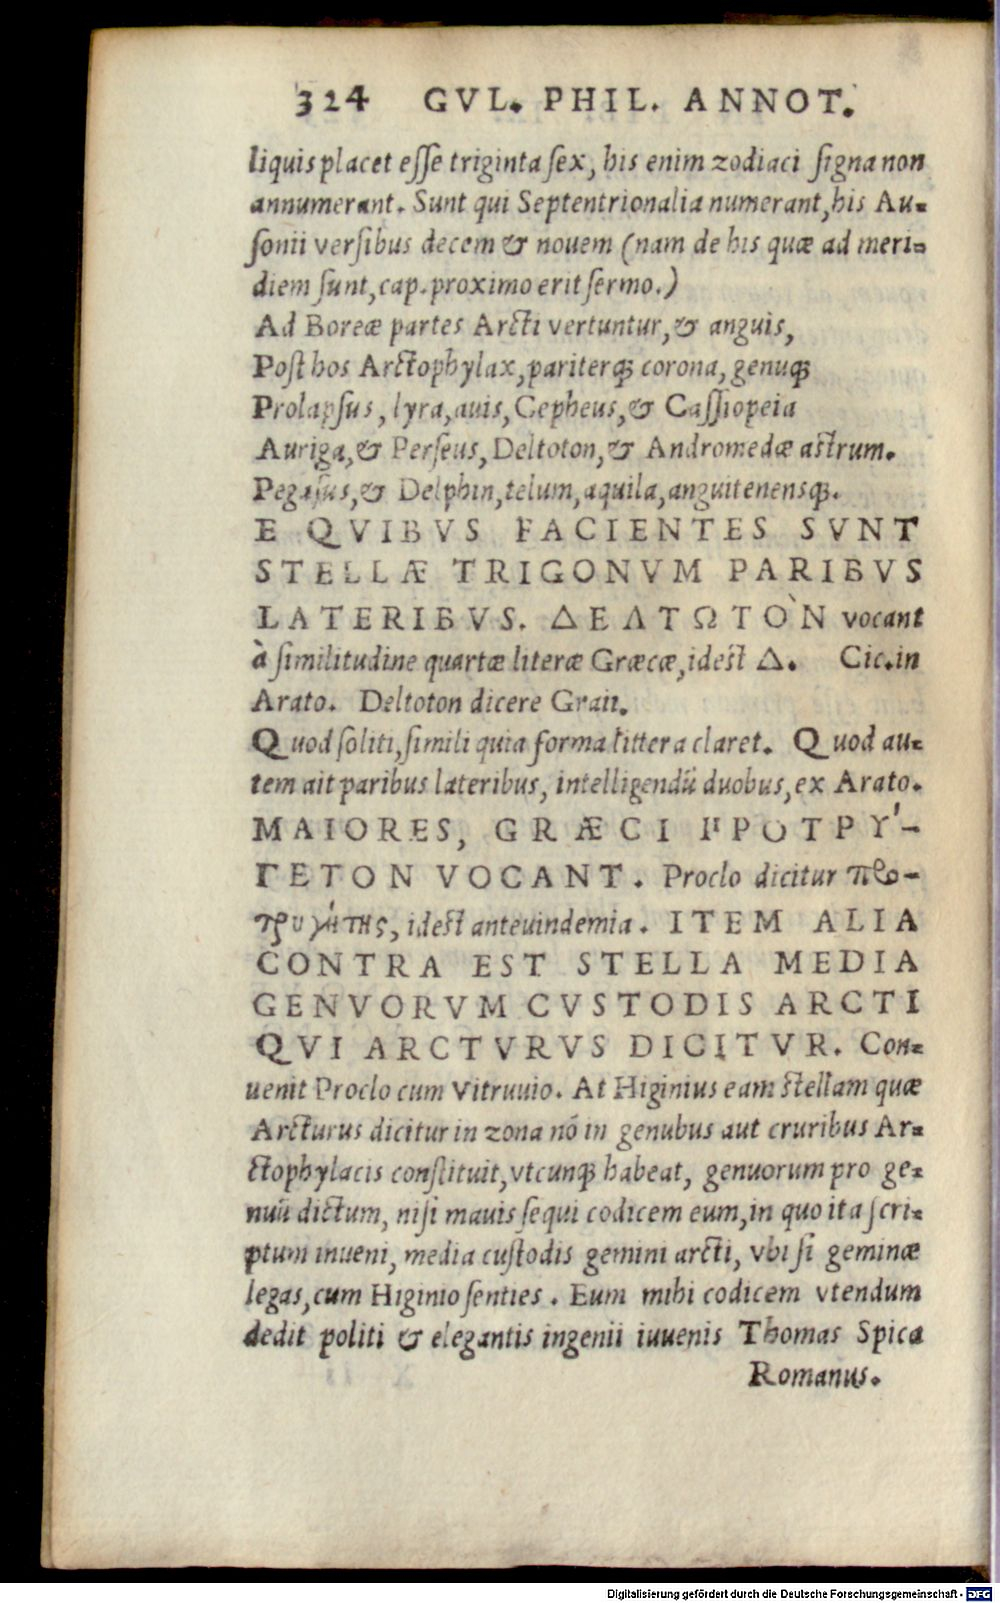 324 GVL. PHIL. ANNOT.
liquis placet eſſe triginta ſex, his enim zodiaci ſigna non
annumerant. Sunt qui Septentrionalia numerant, his Au-
ſonii verſibus decem & nouem (nam de his quæ ad meri-
diem ſunt, cap. proximo erit ſermo.)
Ad Boreæ partes Arcti vertuntur, & anguis,
Poſt hos Arctophylax, pariterq; corona, genuq;
Prolapſus, lyra, auis, Cepheus, & Caſſiopeia
Auriga, & Perſeus, Deltoton, & Andromedæ aſtrum.
Pegaſus, & Delphin, telum, aquila, anguitenensq;.
E QVIBVS FACIENTES SVNT
STELLÆ TRIGONVM PARIBVS
LATERIBVS. ΔΕΛΤΩΤῸΝ vocant
à ſimilitudine quartæ literæ Græcæ, ideſt Δ. Cic. in
Arato. Deltoton dicere Graii.
Quod ſoliti, ſimili quia forma littera claret. Quod au-
tem ait paribus lateribus, intelligendũ duobus, ex Arato.
MAIORES, GRÆCI ΠΡΟΤΡΎ-
ΓΕΤΟΝ VOCANT. Proclo dicitur προ-
τρυγήτης, ideſt anteuindemia. ITEM ALIA
CONTRA EST STELLA MEDIA
GENVORVM CVSTODIS ARCTI
QVI ARCTVRVS DICITVR. Con-
uenit Proclo cum Vitruuio. At Higinius eam ſtellam quæ
Arcturus dicitur in zona nõ in genubus aut cruribus Ar-
ctophylacis conſtituit, vtcunq; habeat, genuorum pro ge-
nuũ dictum, niſi mauis ſequi codicem eum, in quo ita ſcri-
ptum inueni, media cuſtodis gemini arcti, vbi ſi geminæ
legas, cum Higinio ſenties. Eum mihi codicem vtendum
dedit politi & elegantis ingenii iuuenis Thomas Spica
Romanus.
Digitalisierung gefördert durch die Deutsche Forschungsgemeinschaft - DFG